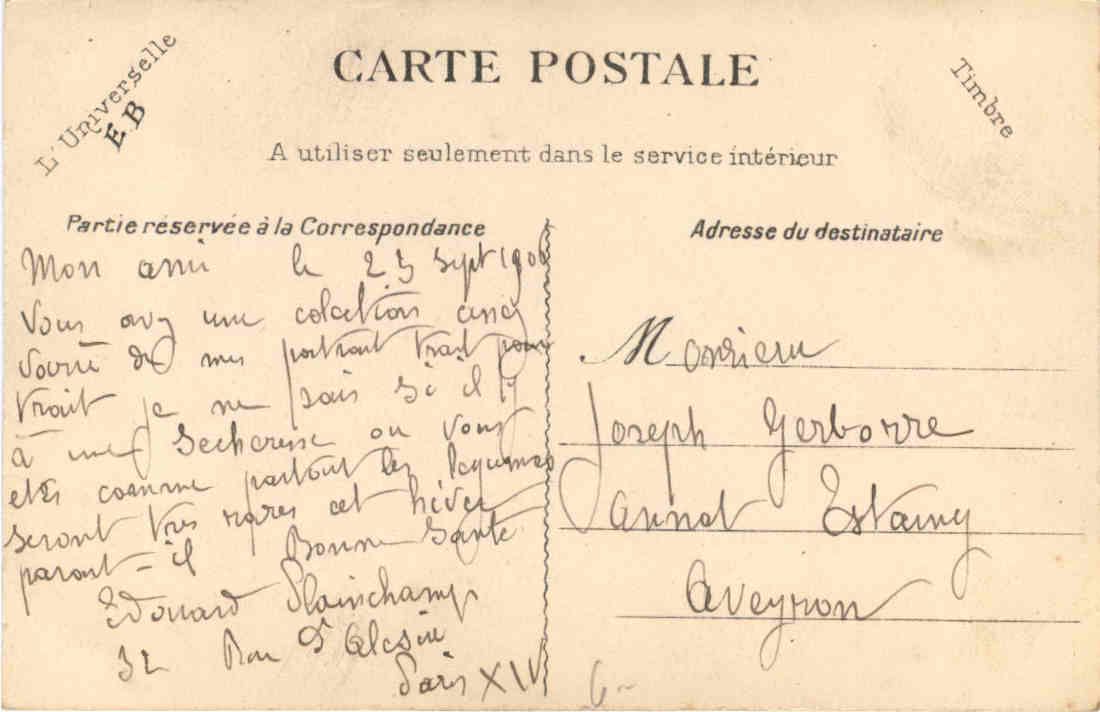 L'Universelle
E B
CARTE POSTALE
Timbre
A utiliser seulement dans le service intérieur
Partie réservée à la Correspondance
Mon ami le 23 Sept 1906
Vous avez une colection assez
varié de mes portrait trait pour
trait je ne sais si il y
à une secheresse ou vous
etes comme partout les legumes
seront tres rares cet hiver
parait-il Bonne Santé
Edouard Plainchamp
32 Rue d'Alesia
Paris XIV
Adresse du destinataire
Monsieur
Joseph Gerborre
Annat Estaing
Aveyron
6-